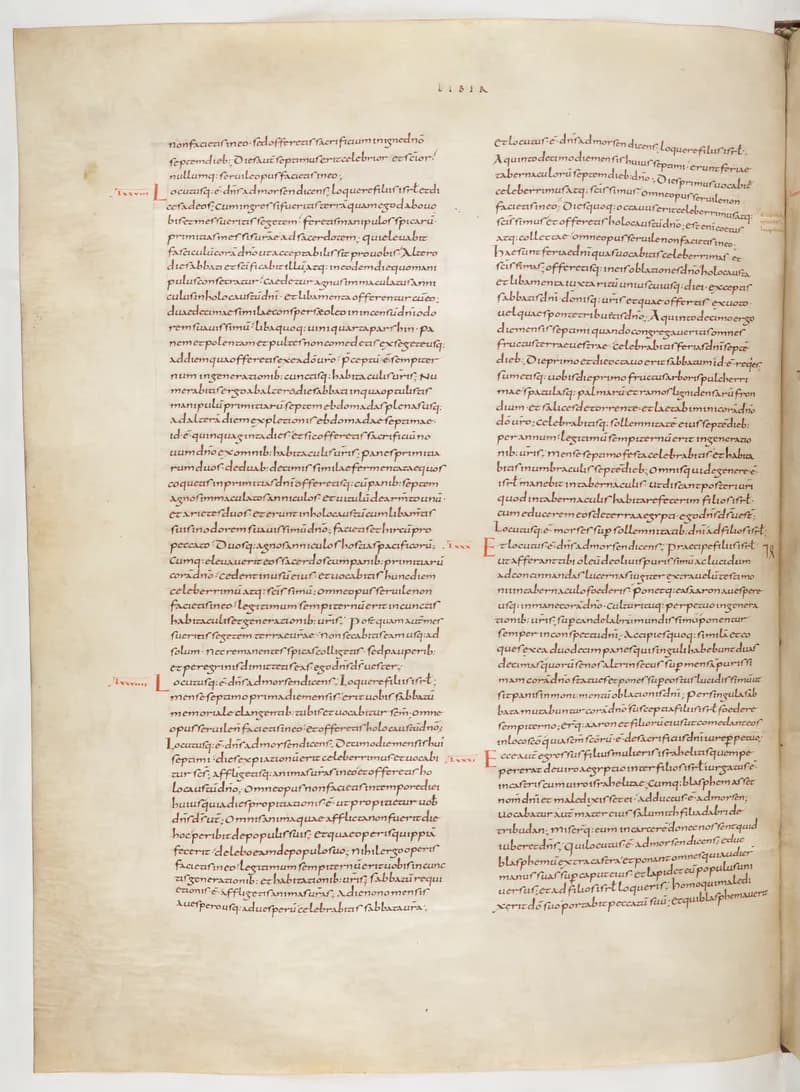 LIBER
non facietis in eo · sed offeretis sacrificium in igne dño
septem dieb; Dies aut̄ septimus erit celebrior · et sc̄ior;
nullumq; seruile opus facietis in eo;
Locutusq; ē dñs ad moysen dicens; loquere filiis isrł et di
ces ad eos; Cum ingressi fueritis terrā quam ego dabo uo
bis et messueritis segetem · feretis manipulos spicarū
primitias messis uŕae ad sacerdotem; qui eleuabit
fasciculū corā dño ut acceptabilis sit pro uobis · Altero
die sabbati et sc̄ificabit illū; atq; in eodem die quo mani
pulus consecratur · caedetur agnus immaculatus anni
culus in holocaustū dñi · et libamenta offerentur cū eo;
duae decimae similae conspersae oleo in incensū dñi odo
rem suauissimū · liba quoq; uini quarta pars hin · pa
nem et polentam et pultes non comedetis ex segete usq;
ad diem qua offeretis ex ea dō uŕo; p̄ceptū ē sempiter
num in generationib; cunctisq; habitaculis uŕis; Nu
merabitis ergo ab altero die sabbati in quo optulistis
manipulū primitiarū septem ebdomadas plenas usq;
ad alterā diem expletionis ebdomadae septimae ·
id ē quinquaginta dies et sic offeretis sacrificiū no
uum dño ex omnib; habitaculis uŕis; panes primitia
rum duos · de duab; decimis similae fermentatae quos
coquetis in primitias dñi offeretisq; cū panib; septem
agnos immaculatos anniculos et uitulū de arm̄to unū ·
et arietes duos et erunt in holocaustū cum libam̄tis
suis in odorem suauissimū dño; facietis et hircū pro
peccato · Duosq; agnos anniculos hostias pacificorū;
Cumq; eleuauerit eos sacerdos cum panib; primitiarū
corā dño · cedent in usū eius et uocabitis hunc diem
celeberrimū atq; sc̄issimū; omne opus seruile non
facietis in eo; legitimum sempiternū erit in cunctis
habitaculis et generationib; uŕis; Postquam aut̄ mes
sueritis segetem terrae uŕae · non secabitis eam usq; ad
solum · nec remanentes spicas colligetis · sed pauperib;
et peregrinis dimittetis eas · ego dñs dś uester;
Locutusq; ē dñs ad moysen dicens; loquere filiis isrł;
mense septimo prima die mensis erit uobis sabbatū
memoriale clangentib; tubis et uocabitur sc̄m · omne
opus seruile nō facietis in eo et offeretis holocaustū dño;
Locutusq; ē dñs ad moysen dicens; Decimo die mensis hui
septimi · dies expiationū erit celeberrimus et uocabi
tur sc̄s; affligetisq; animas uŕas in eo et offeretis ho
locaustū dño; Omne opus non facietis in tempore diei
huius quia dies propitiationis ē · ut propitietur uob
dñs dś uŕ; Omnis anima quae afflicta non fuerit die
hoc peribit de populis suis; et quae operis quippiā
fecerit · delebo eam de populo suo; nihil ergo operis
facietis in eo; legitimum sempiternū erit uobis in cunc
tis generationib; et habitationib; uŕis; sabbatū requi
etionis ē · affligetis animas uŕas; a die nono mensis
a uespero usq; ad uesperū celebrabitis sabbata uŕa;
Et locutus ē dñs ad moysen dicens; loquere filiis isrł·
A quinto decimo die mensis huius septimi · erunt feriae
tabernaculorū septem dieb; dño; Dies primus uocabit̄
celeberrimus atq; sc̄issimus · omne opus seruile non
facietis in eo; Die quoq; octauus erit celeberrimus atq;
sc̄issimus et offeretis holocaustū dño; est enī coetus
atq; collectae · omne opus seruile non facietis in eo;
Hae sunt feriae dñi quas uocabitis celeberrimas et
sc̄issimas; offeretisq; in eis oblationes dño holocausta
et libamenta iuxta ritū uniuscuiusq; diei · exceptis
sabbatis dñi · donisq; uŕis et quae offertis ex uoto ·
uel quae sponte tribuetis dño; A quinto decimo ergo
die mensis septimi quando congregaueritis omnes
fructus terrae uestrae · celebrabitis ferias dñi septē
dieb; Die primo et die octauo erit sabbatum id ē requies
sumetisq; uobis die primo fructus arboris pulcherri
mae spatulasq; palmarū et ramos ligni densarū fron
dium · et salices de torrente · et laetabimini corā dño
dō uŕo; celebrabitisq; sollemnitatē eius septē dieb;
per annum; legitimū sempiternū erit in generatio
nib; uŕis; mense septimo festa celebrabitis et habita
bitis in umbraculis septē dieb; Omnis qui de genere ē
isrł manebit in tabernaculis · ut discant posteri uŕi
quod in tabernaculis habitare fecerim filios isrł·
cum educerem eos de terra aegypti · ego dñs dś uest̄;
Locutusq; ē moyses sup sollemnitatib; dñi ad filios isrł·
Et locutus ē dñs ad moysen dicens; praecipe filiis isrł·
ut afferant tibi oleū de oliuis purissimū ac lucidum
ad concinnandas lucernas iugiter extra uelū testimo
nii in tabernaculo foederis; ponetq; eas aaron a uespere
usq; in mane corā dño · cultu rituq; perpetuo in genera
tionib; uŕis; sup candelabrū mundissimū ponentur
semper in conspectu dñi; Accipies quoq; similā et co
ques ex ea duodecim panes qui singuli habebunt duas
decimas quorū senos altrinsecus sup mensā purissi
mam corā dño statues et pones sup eos tus lucidissimū ut
sit panis in monimentū oblationis dñi; Per singula sab
bata mutabuntur corā dño suscepti a filiis isrł· foedere
sempiterno; erūtq; aaron et filiorū eius ut comedant eos
in loco sc̄o quia sc̄m sc̄orū ē · de sacrificiis dñi iure perpetuo;
Ecce aut̄ egressus filius mulieris israhelitis quem pe
pererat de uiro aegyptio inter filios isrł· iurgatus ē
in castris cum uiro israhelitae; Cumq; blasphemasset
nomen dñi et maledixisset ei · adductus ē ad moysen;
Uocabatur aut̄ mater eius salumith filia dabri de
tribu dan; miserq; eum in carcerē donec nossent quid
iuberet dñs; qui locutus ē ad moysen dicens; educ
blasphemū extra castra et ponant omnes qui audier
manus suas sup caput eius et lapidet eū populus uni
uersus; et ad filios isrł· loqueris; homo qui maledi
xerit dō suo portabit peccatū suū; et qui blasphemauerit